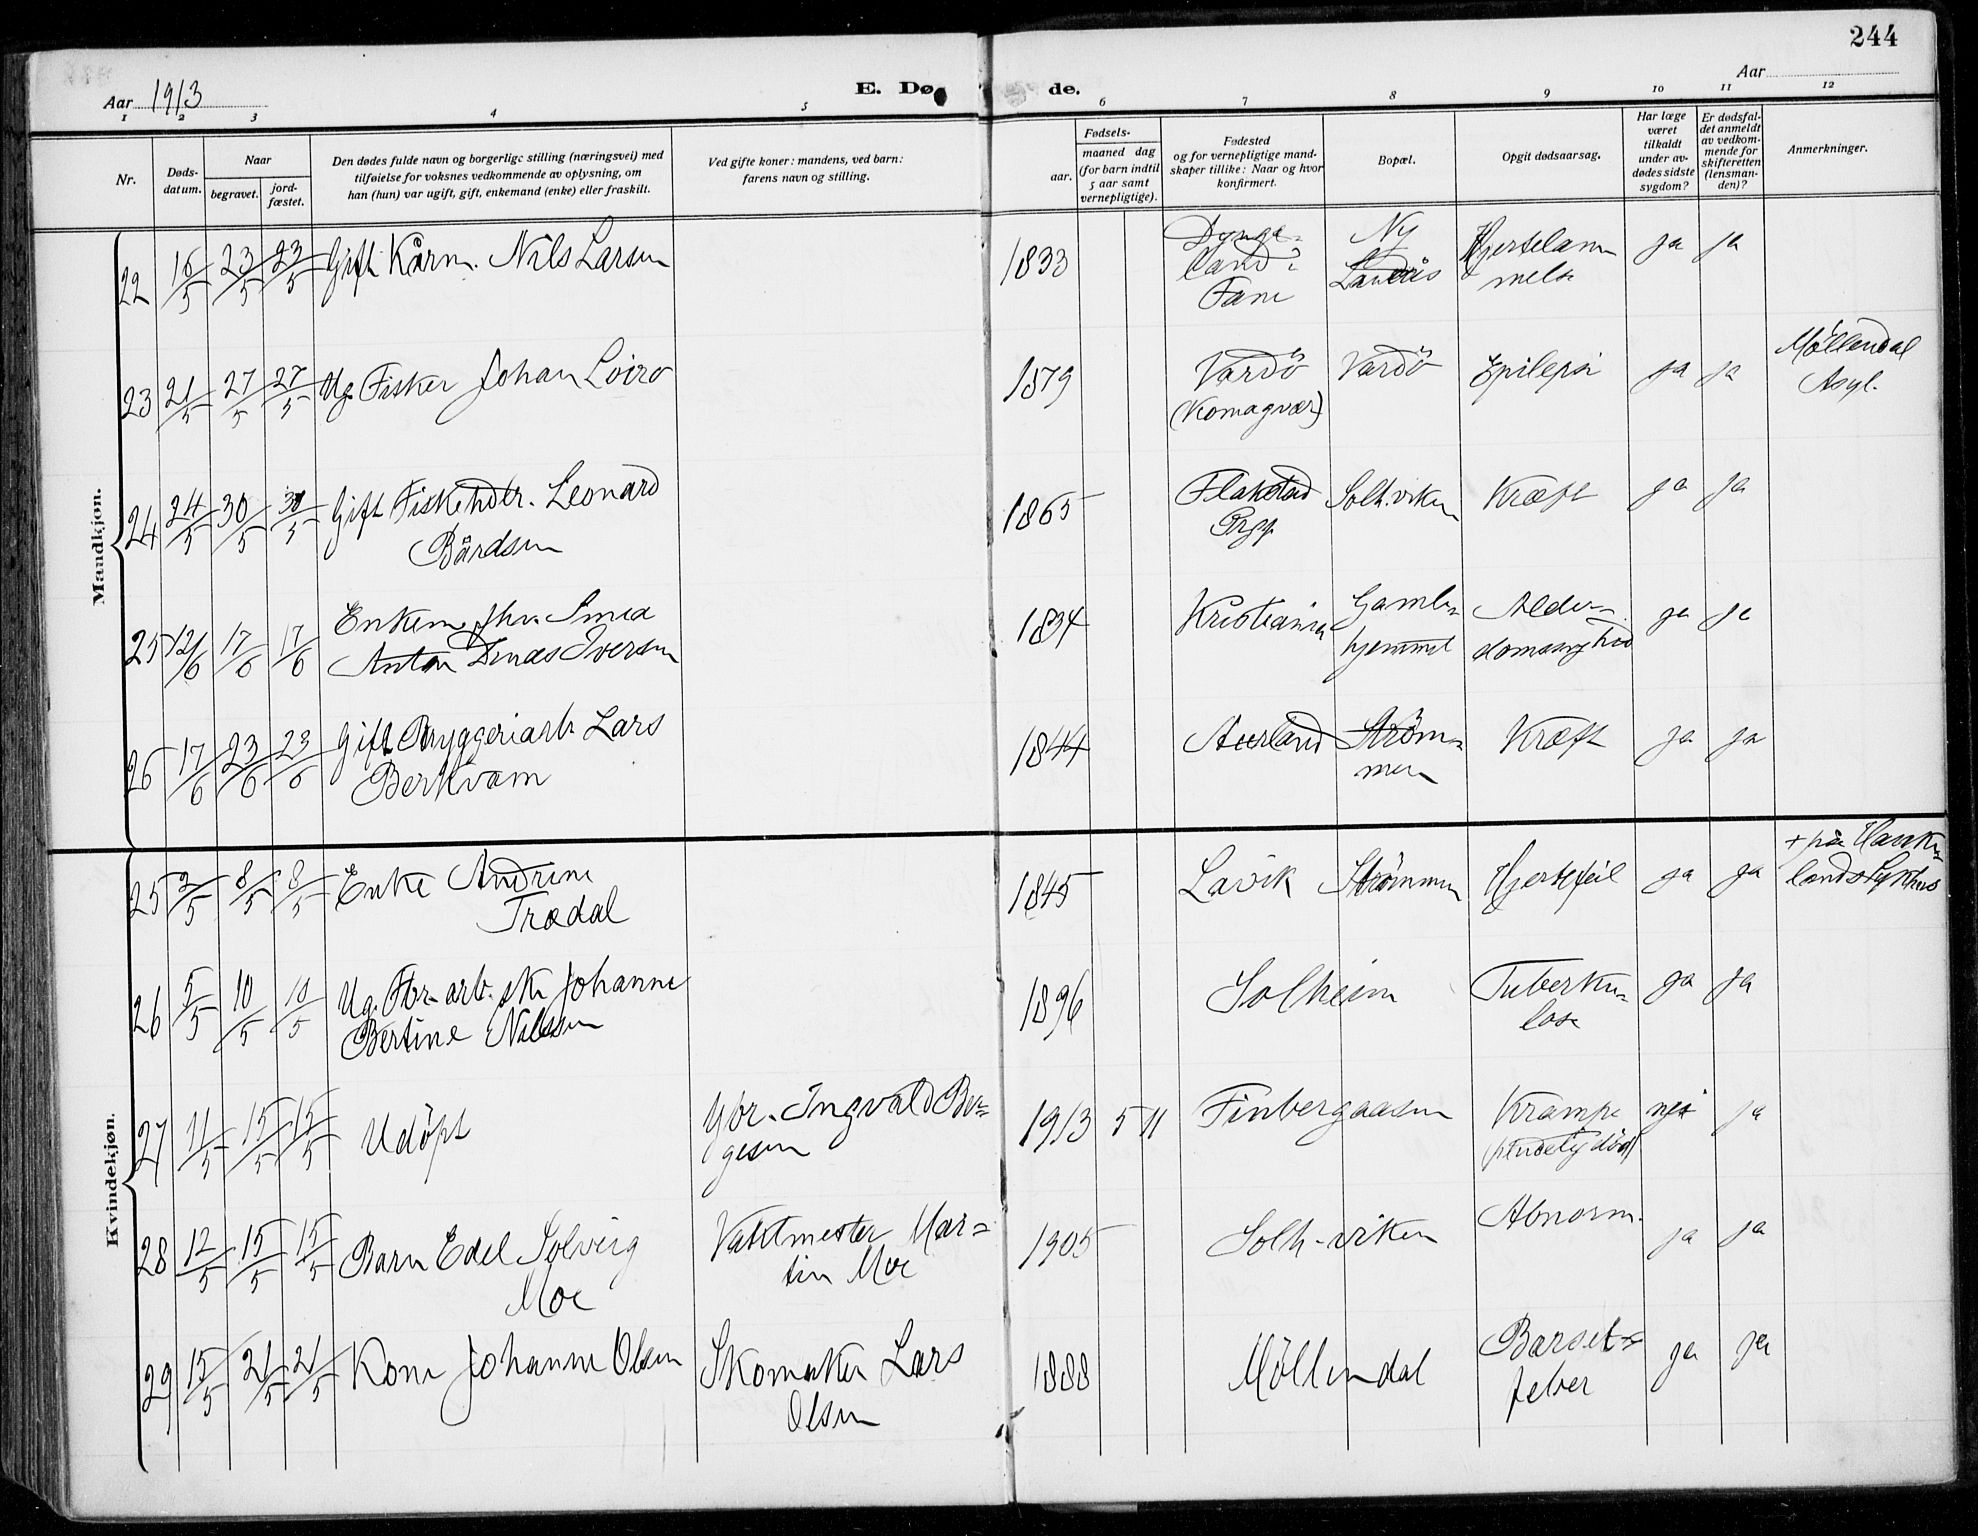 244
Aar 1913
E. Dø de.
Aar
1 2 3 4 5 6 7 8 9 10 11 12
Nr.
Døds-
datum.
Naar
begravet.
jord-
fæstet.
Den dødes fulde navn og borgerlige stilling (næringsvei) med
tilføielse for voksnes vedkommende av oplysning, om
han (hun) var ugift, gift, enkemand (enke) eller fraskilt.
Ved gifte koner: mandens, ved barn:
farens navn og stilling.
Fødsels-
aar.
maaned dag
(for barn indtil
5 aar samt
vernepligtige).
Fødested
og for vernepligtige mand-
skaper tillike: Naar og hvor
konfirmert.
Bopæl.
Opgit dødsaarsag.
Har læge
været
tilkaldt
under av-
dødes sidste
sygdom?
Er dødsfal-
det anmeldt
av vedkom-
mende for
skifteretten
(lensman-
den)?
Anmerkninger.
Mandkjøn.
22 16/5 23/5 23/5 Gift Kårm. Nils Larsen 1833 Fane Ny Landås Hjertelam-
melse ja ja
23 21/5 27/5 27/5 Ug. Fisker Johan Loiro 1879 Vardö
(Komagvær) Vardö Epilepsi ja ja Møllendal
Asyl.
24 24/5 30/5 30/5 Gift Fiskehdlr. Leonard
Bårdsen 1865 Flakstad
Solh.viken Kræft ja ja
25 12/6 17/6 17/6 Enkem. fhv. Smed
Anton Dines Iversen 1834 Kristiania Gamle-
hjemmet Alder-
domssvaghed ja ja
26 17/6 23/6 23/6 Gift Bryggeriarb. Lars
Berkvam 1844 Aurland Strøm-
men Kræft ja ja
Kvindekjøn.
25 2/5 8/5 8/5 Enke Andrine
Trædal 1845 Lavik Strömmen Hjertefeil ja ja + på Hauke-
lands Sykehus
26 5/5 10/5 10/5 Ug. Fbr-arb.ske Johanne
Bertine Nilssen 1896 Solheim Tuberku-
lose ja ja
27 11/5 15/5 15/5 Udöpt Gbr. Ingvald Bør-
gesen 1913 5 11 Finbergaasen Krampe
(pludselig död) nei ja
28 12/5 15/5 15/5 Barn Edel Solveig
Moe Vaktmester Mar-
tin Moe 1905 Solh-viken Abnorm. ja ja
29 15/5 21/5 21/5 Kone Johanne Olsen Skomaker Lars
Olsen 1888 Möllendal Barsel-
feber ja ja